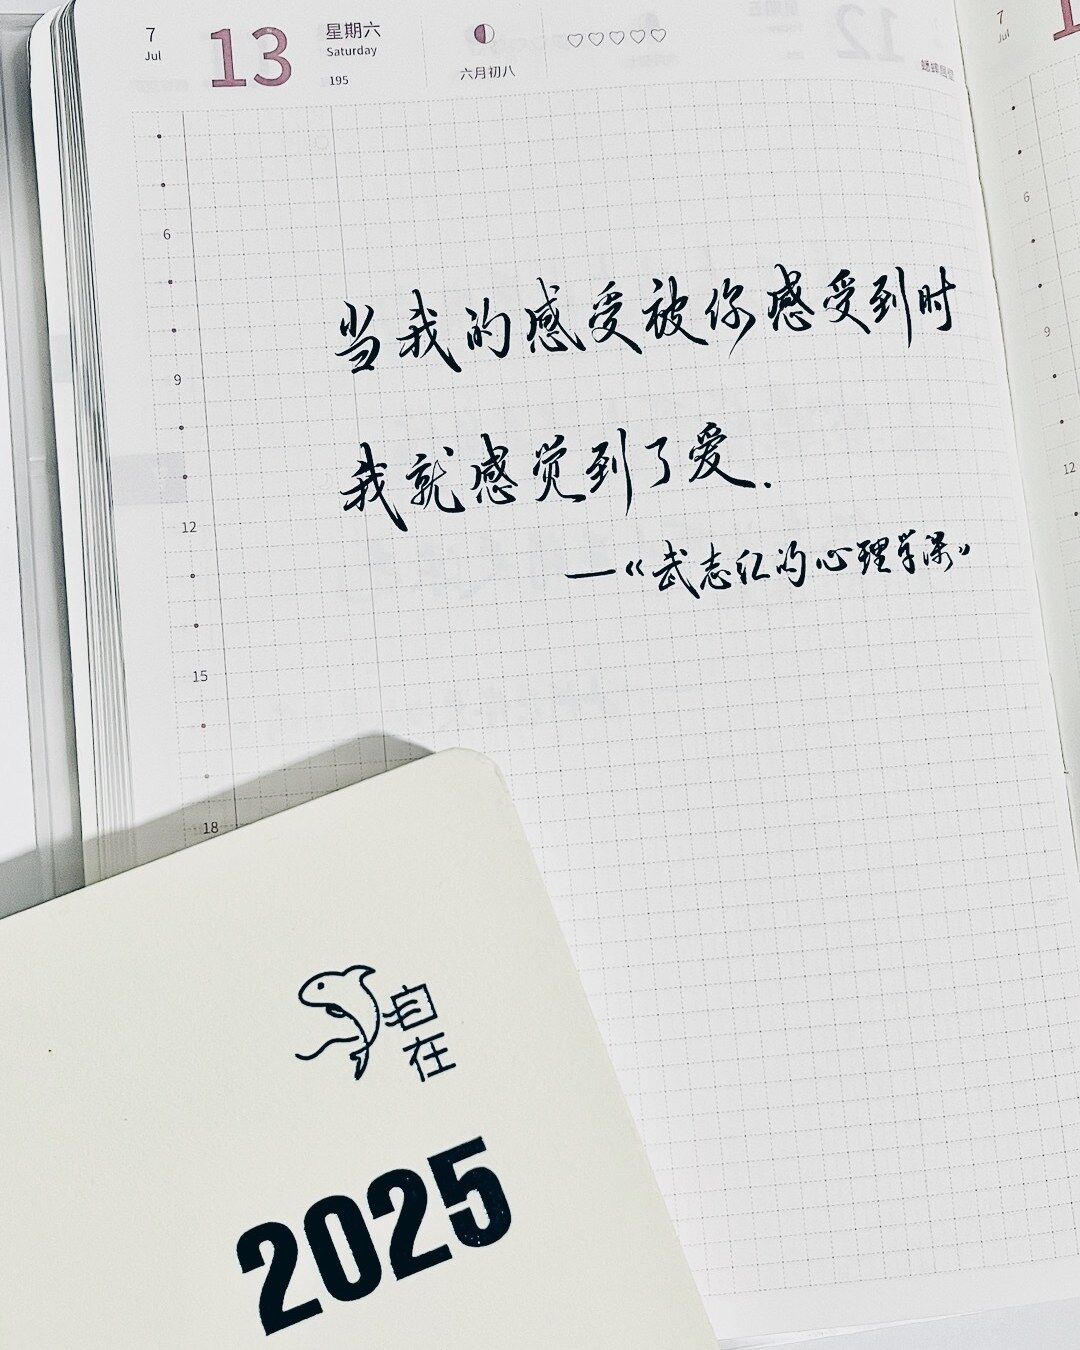 7
Jul
13
星期六
Saturday
195
六月初八
7
Jul
6
9
12
15
18
6
9
12
当我的感受被你感受到时
我就感觉到了爱.
—《武志红的心理学课》
自在
2025